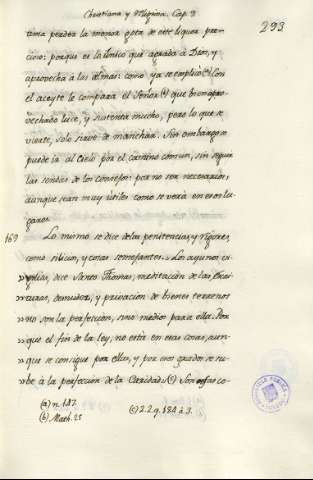 Christiana y Mystica. Cap. 9
293
tima perdea la menor gota de este liquor pre-
cioso: porque es lo único que agrada a Dios, y
aprovecha a las almas: como ya se explicó (a) Con
el aceyte le compara el Señor (b) que bien apro-
vechado luce, y sustenta mucho, pero lo que se
vierte, solo sirve de manchar. Sin embargo se
puede ir al Cielo por el camino común, sin seguir
las sendas de los consejos: por no ser necesarios,
aunque sean muy útiles como se verá en eros lu-
gares.
169 Lo mismo se dice de las penitencias, y rigores,
como silicios, y cosas semejantes. Los ayunos vi-
»gilias, dice Santo Thomas, meditación de las Escri-
»turas, desnudez, y privación de bienes terrenos
»no son la perfección, sino medios para ella. Por
que el fin de la ley, no está en esas cosas, aun-
»que se consigue por ellas, y por esos grados se su-
»be á la perfección de la Caridad (c) Son estas co-
(a) n. 142
(b) Math. 25
(c) 2. 2. q. 184. á 3.